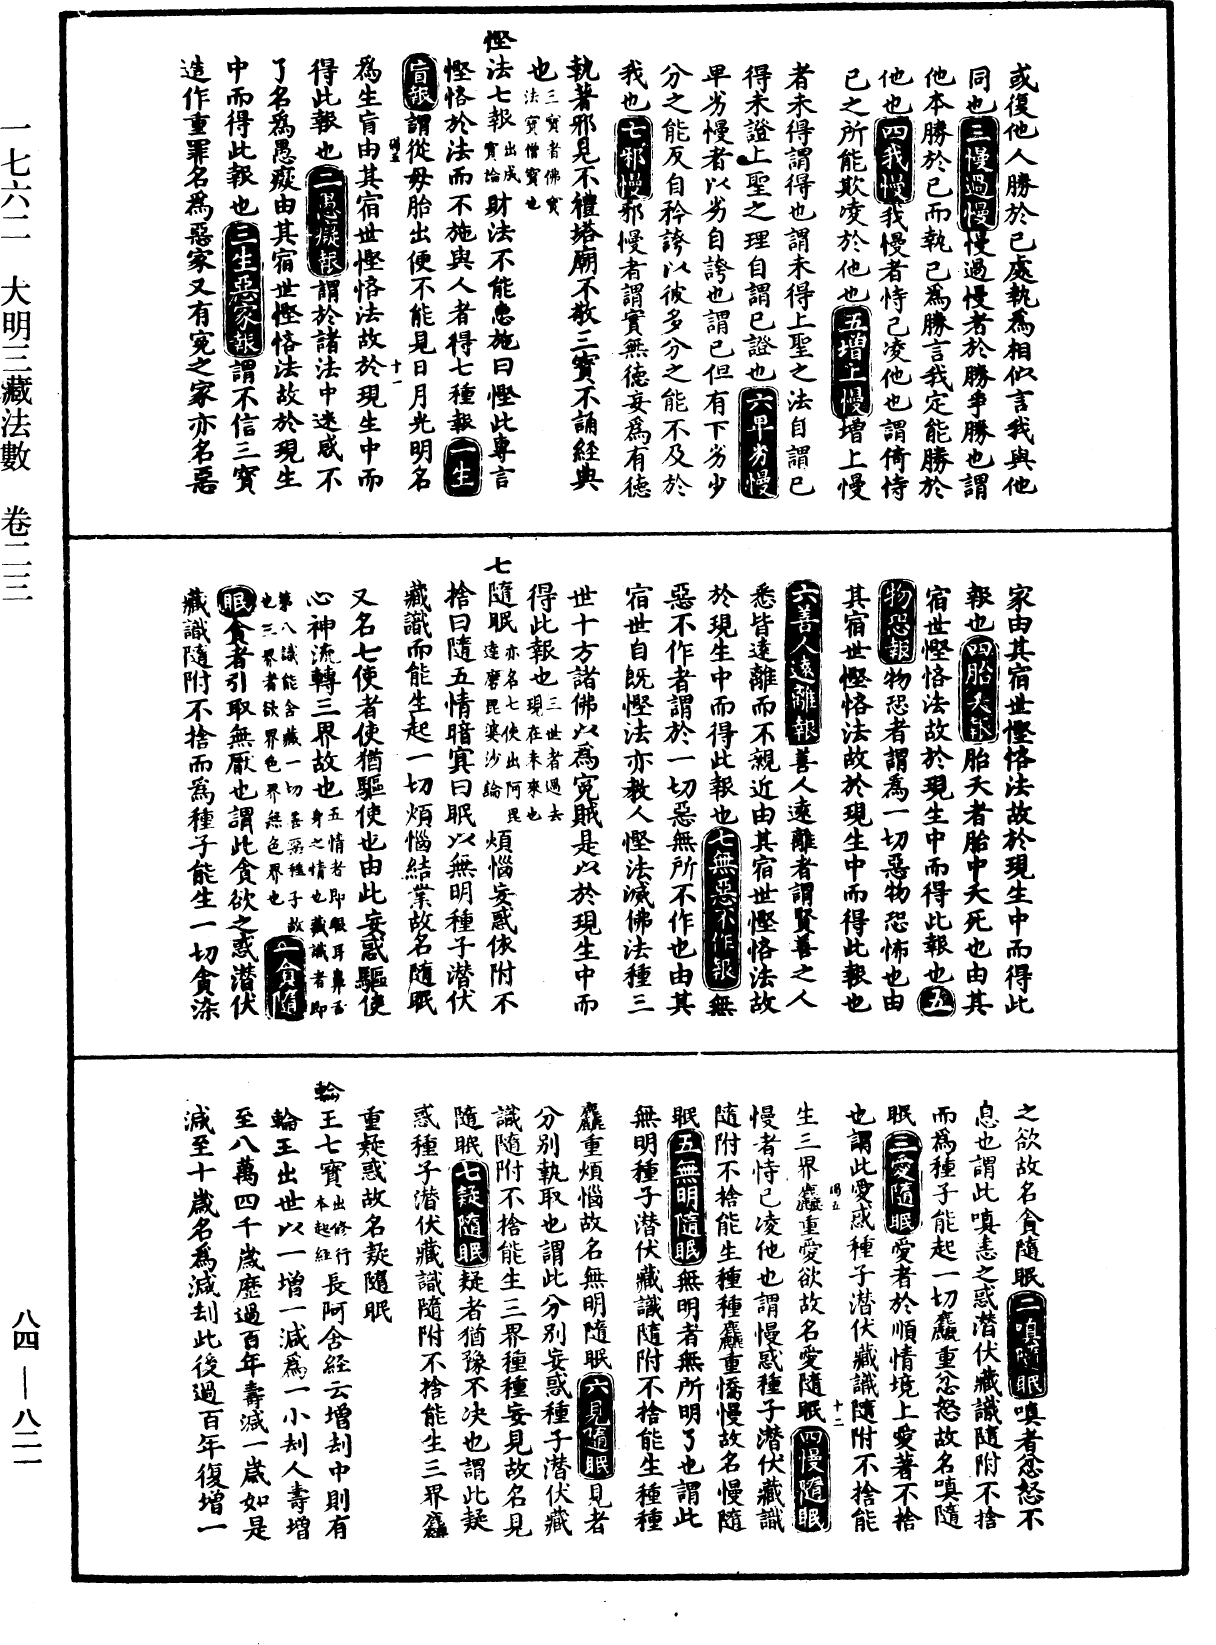 一七六二　大明三藏法數　卷二三
或復他人勝於己處執為相似言我與他
同也三慢過慢慢過慢者於勝爭勝也謂
他本勝於己而執己為勝言我定能勝於
他也四我慢我慢者恃己凌他也謂倚恃
己之所能欺凌於他也五增上慢增上慢
者未得謂得也謂未得上聖之法自謂已
得未證上聖之理自謂已證也六卑劣慢
卑劣慢者以劣自誇也謂己但有下劣少
分之能反自矜誇以彼多分之能不及於
我也七邪慢邪慢者謂實無德妄為有德
執著邪見不禮塔廟不敬三寶不誦經典
也三寶者佛寶法寶僧寶也
慳法七報出成實論財法不能惠施曰慳此專言
慳悋於法而不施與人者得七種報一生
盲報謂從母胎出便不能見日月光明名
為生盲由其宿世慳悋法故於現生中而
得此報也二愚癡報謂於諸法中迷惑不
了名為愚癡由其宿世慳悋法故於現生
中而得此報也三生惡家報謂不信三寶
造作重罪名為惡家又有冤之家亦名惡
家由其宿世慳悋法故於現生中而得此
報也四胎夭報胎夭者胎中夭死也由其
宿世慳悋法故於現生中而得此報也五
物恐報物恐者謂為一切惡物恐怖也由
其宿世慳悋法故於現生中而得此報也
六善人遠離報善人遠離者謂賢善之人
悉皆遠離而不親近由其宿世慳悋法故
於現生中而得此報也七無惡不作報無
惡不作者謂於一切惡無所不作也由其
宿世自既慳法亦教人慳法滅佛法種三
世十方諸佛以為冤賊是以於現生中而
得此報也三世者過去現在未來也
七隨眠亦名七使出阿毘達磨毘婆沙論煩惱妄惑依附不
捨曰隨五情暗冥曰眠以無明種子潛伏
藏識而能生起一切煩惱結業故名隨眠
又名七使者使猶驅使也由此妄惑驅使
心神流轉三界故也五情者即眼耳鼻舌身之情也藏識者即
第八識能含藏一切善惡種子故也三界者欲界色界無色界也一貪隨
眠貪者引取無厭也謂此貪欲之惑潛伏
藏識隨附不捨而為種子能生一切貪染
之欲故名貪隨眠二嗔隨眠嗔者忿怒不
息也謂此嗔恚之惑潛伏藏識隨附不捨
而為種子能起一切麤重忿怒故名嗔隨
眠三愛隨眠愛者於順情境上愛著不捨
也謂此愛惑種子潛伏藏識隨附不捨能
生三界麤重愛欲故名愛隨眠四慢隨眠
慢者恃己凌他也謂慢惑種子潛伏藏識
隨附不捨能生種種麤重憍慢故名慢隨
眠五無明隨眠無明者無所明了也謂此
無明種子潛伏藏識隨附不捨能生種種
麤重煩惱故名無明隨眠六見隨眠見者
分別執取也謂此分別妄惑種子潛伏藏
識隨附不捨能生三界種種妄見故名見
隨眠七疑隨眠疑者猶豫不決也謂此疑
惑種子潛伏藏識隨附不捨能生三界麤
重疑惑故名疑隨眠
輪王七寶出修行本起經長阿含經云增刦中則有
輪王出世以一增一減為一小刦人壽增
至八萬四千歲歷過百年壽減一歲如是
減至十歲名為減刦此後過百年復增一
十一
十二
八四—八二一